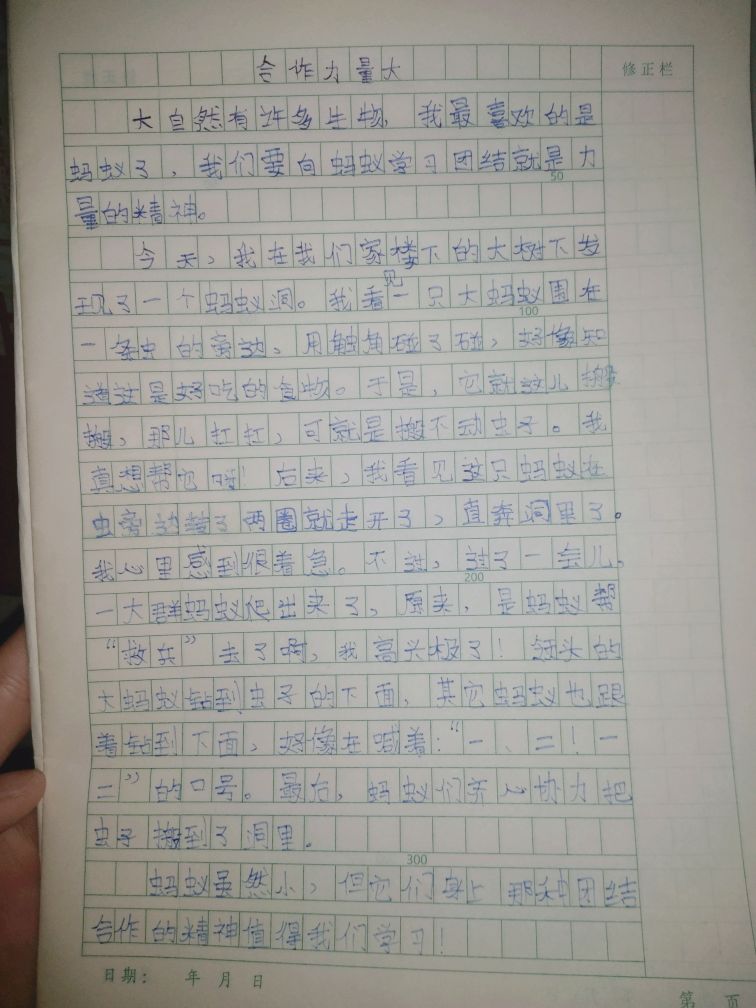 合作力量大
修正栏
大自然有许多生物,我最喜欢的是
蚂蚁了,我们要向蚂蚁学习团结就是力
50
量的精神。
今天,我在我们家楼下的大树下发
现了一个蚂蚁洞。我看见一只大蚂蚁围在
100
一条虫的旁边,用触角碰了碰,好像知
道这是好吃的食物。于是,它就这儿搬
搬,那儿扛扛,可就是搬不动虫子。我
真想帮它呀!后来,我看见这只蚂蚁在
虫旁边转了两圈就走开了,直奔洞里了。
我心里感到很着急。不过,过了一会儿,
200
一大群蚂蚁爬出来了,原来,是蚂蚁帮
“救兵”去了啊,我高兴极了!领头的
大蚂蚁钻到虫子的下面,其它蚂蚁也跟
着钻到下面,好像在喊着:“一、二!一
二”的口号。最后,蚂蚁们齐心协力把
虫子搬到了洞里。
300
蚂蚁虽然小,但它们身上那种团结
合作的精神值得我们学习!
日期: 年 月 日
第 页